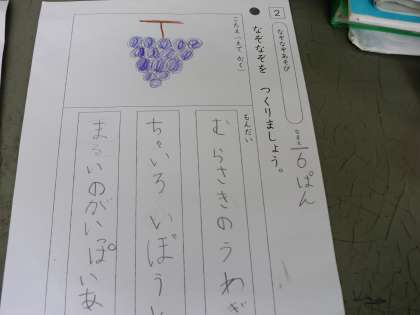 2
なぞなぞあそび
なぞなぞを つくりましょう。
なまえ
6ぱん
こたえ(えで かく)
もんだい
むらさきのうわぎ
ちゃいろ いぽう
まるいのがいぱいあ